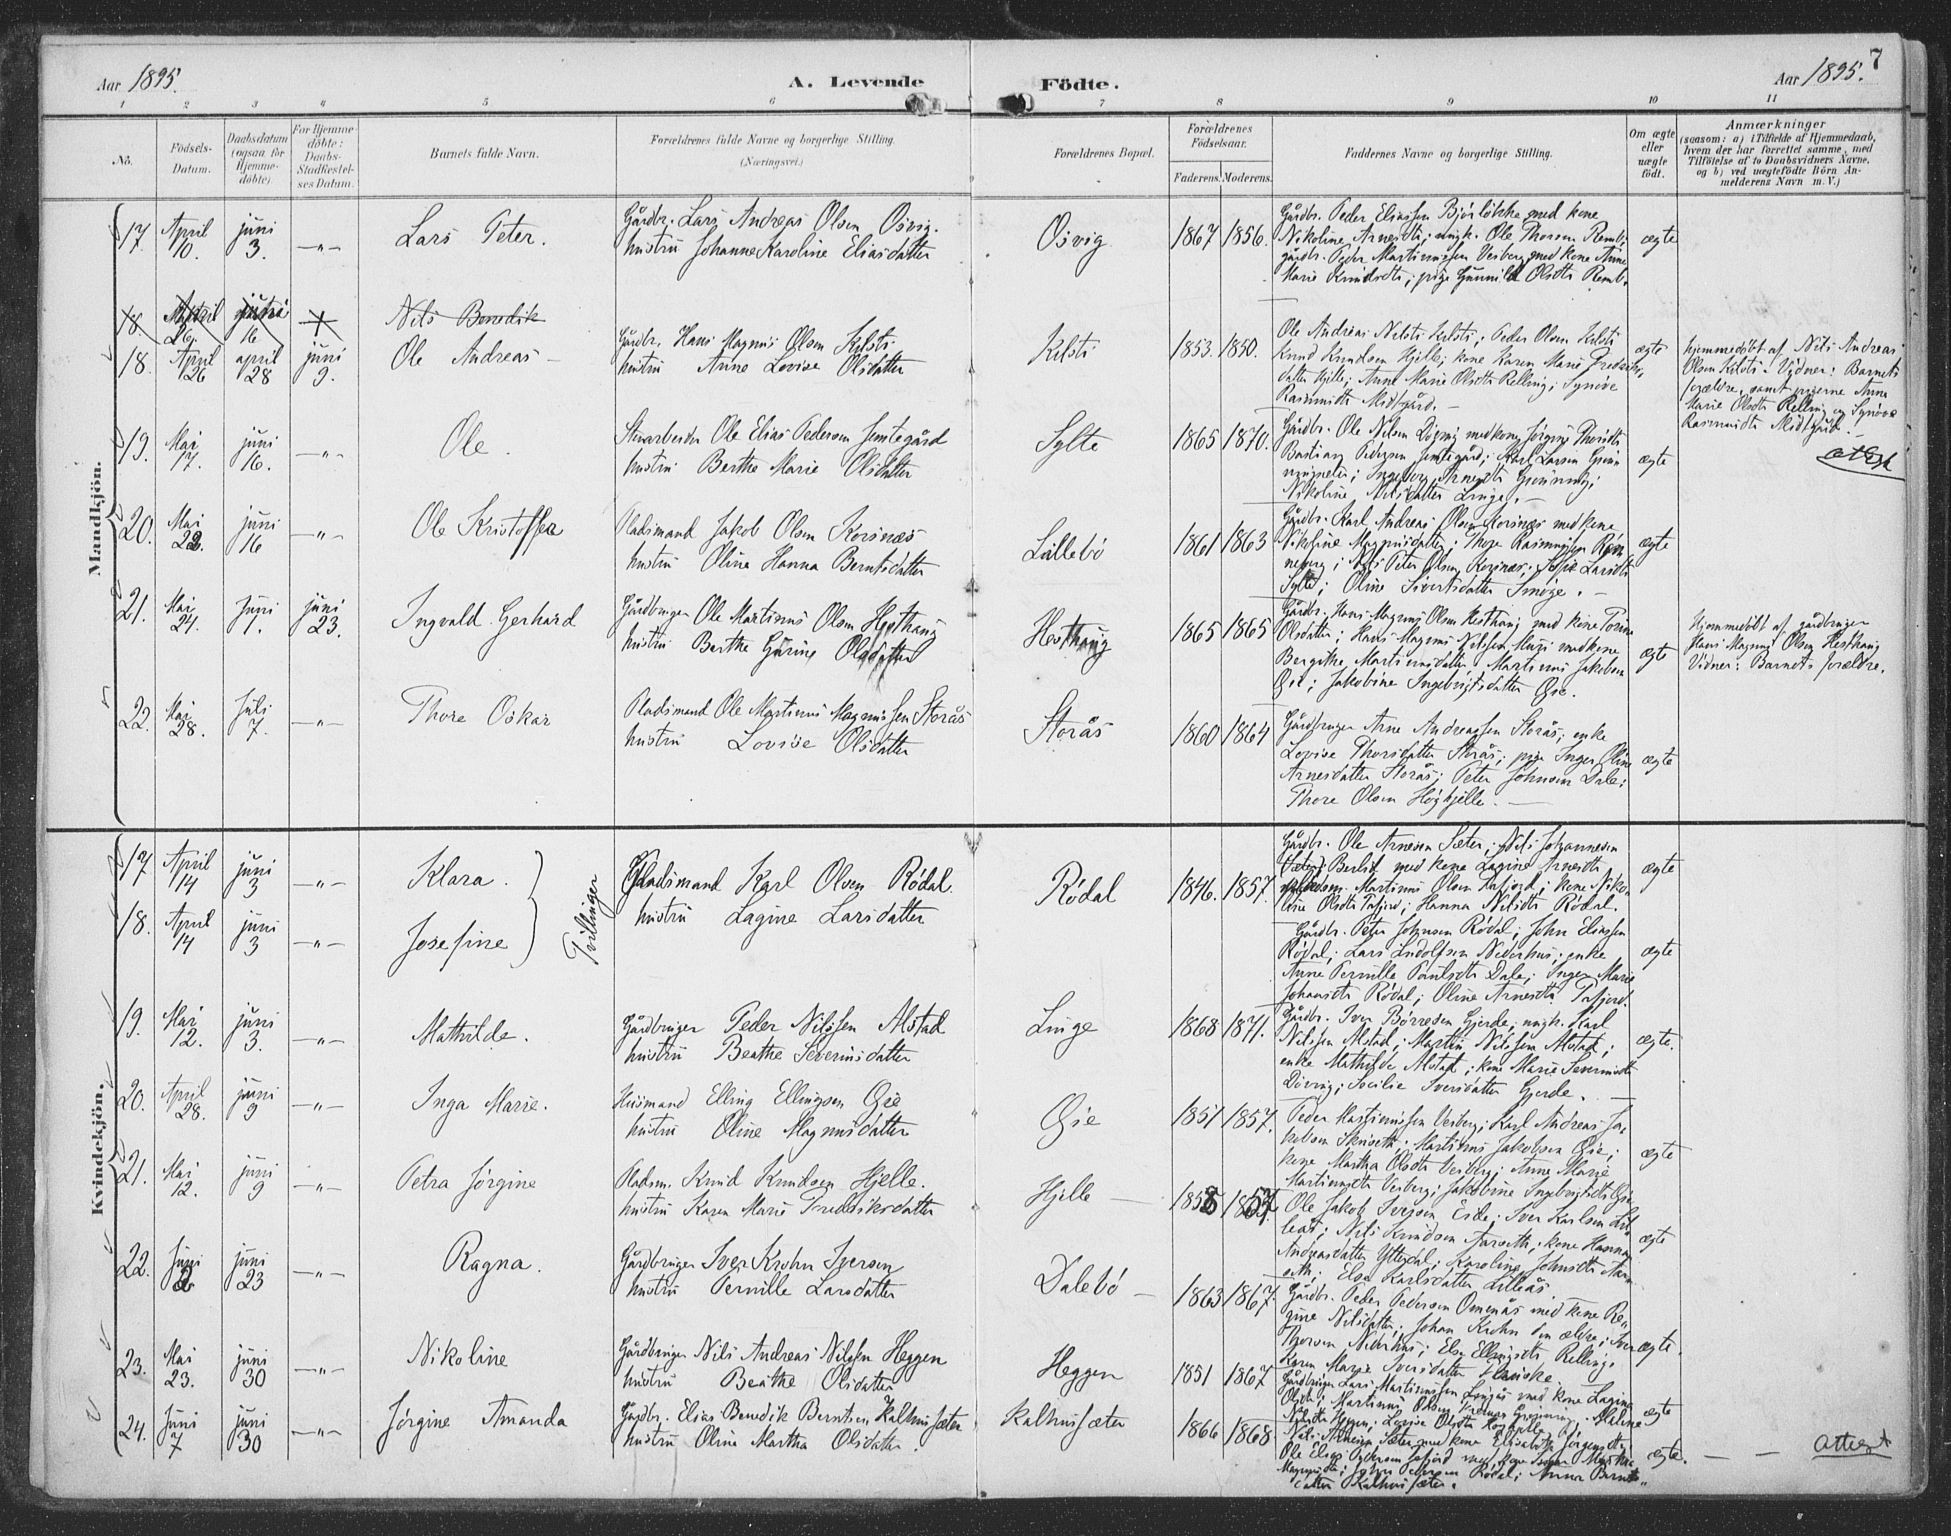 Aar 1895.
A. Levende Födte.
Aar 1895.
7
1 2 3 4 5 6 7 8 9 10 11
No.
Födsels-
Datum.
Daabsdatum
(ogsaa for
Hjemme-
döbte)
For Hjemme-
döbte:
Daabs-
Stadfæstel-
ses Datum.
Barnets fulde Navn.
Forældrenes fulde Navne og borgerlige Stilling.
(Næringsvei.)
Forældrenes Bopæl.
Forældrenes
Födselsaar.
Faderens. Moderens.
Faddernes Navne og borgerlige Stilling.
Om ægte
eller
uægte
födt.
Anmærkninger
(saasom: a) i Tilfælde af Hjemmedaab,
hvem der har forrettet samme, med
Tilföielse af to Daabsvidners Navne,
og b) ved uægtefödte Börn An-
melderens Navn m. V.)
Mandkjön.
17. April 10. juni 3. —"— Lars Peter.
Gårdbr. Lars Andreas Olsen Osvig.
hustru Johanne Karoline Eliasdatter
Osvig 1867 1856.
Gårdbr. Peder Eliassen med kone
Nikoline Arnesdtr; ungk. Ole Thoresen Remb;
gårdbr. Peder Martinussen Veiberg med kone Anne
Marie Knudsdtr; pige Gunnild Olsdtr Remb.
ægte
18 April 26 juni 16 Nils Benedik
18. April 26 april 28 juni 9. Ole Andreas —
Gårdbr. Hans Magnus Olsen Kilsti
hustru Anne Lovise Olsdatter
Kilsti 1853. 1850.
Ole Andreas Nilsen Kilsti; Peder Olsen Kilsti
Knud Knudsen Hjelle; kone Karen Marie Fredriks-
datter Hjelle; Anne Marie Olsdtr Relling; Synöve
Rasmusdtr Midtgård. —
ægte
Hjemmedöbt af Nils Andreas
Olsen Kilsti. Vidner: Barnets
forældre, samt pigerne Anne
Marie Olsdtr Relling og Synöve
Rasmusdtr Midtgård —
19. Mai 17. juni 16. —"— Ole.
Ole Elias Pedersen Jemtegård
hustru Berthe Marie Olsdatter
Sylte 1865 1870.
Gårdbr. Ole Nilsen Döving med kone Jörgine Thoresdtr
Bastian Pedersen Jemtegård; Karl Larsen Grön-
ningsæter; Ingeborg Arnesdtr Grönning;
Nikoline Nilsdatter Linge. —
ægte
attest
20. Mai 22. juni 16 —"— Ole Kristoffer
Pladsmand Jakob Olsen Korsnæs
hustru Oline Hanna Berntsdatter
Lillebö 1861 1863
Gårdbr. Karl Andreas Olsen Korsnæs med kone
Nikoline Magnusdatter; Thore Rasmussen Rön-
neberg; Nils Peter Olsen Korsnæs; Sofie Larsdtr
Sylte; Oline Sivertsdatter Smöge. —
ægte
21. Mai 24. Juni 1. juni 23. Ingvald Gerhard
Gårdbruger Ole Martinus Olsen Hesthaug
hustru Berthe Gurine Olsdatter
Hesthaug 1865 1865
Gårdbr. Hans Magnus Olsen Hesthaug med kone Torine
Olsdatter; Hans Magnus Nilssen Muri med kone
Bergithe Martinusdatter; Martinus Jakobsen
Öie; Jakobine Ingebrigtsdatter Öie.
ægte
Hjemmedöbt af gårdbruger
Hans Magnus Olsen Hesthaug
Vidner: Barnets forældre.
22. Mai 28. Juli 7. —"— Thore Oskar
Pladsmand Ole Martinus Magnussen Storås
hustru Lovise Olsdatter
Storås 1860 1864
Gårdbruger Arne Andreassen Storås; enke
Lovise Thoresdatter Storås; pige Inger Oline
Arnesdatter Storås; Peter Johnsen Dale;
Thore Olsen Höghjelle. —
ægte
Kvindekjön.
17 April 14 juni 3 —"— Klara.
18. April 14 juni 3 —"— Josefine
Tvillinger
Pladsmand Karl Olsen Rödal.
hustru Lagine Larsdatter
Rödal 1846. 1857.
Gårdbr. Ole Arnesen Sæter; Nils Johannesen
Berlid med kone Lagine Arnesdtr
Martinus Olsen Tafjord; kone Niko-
line Olsdtr Tafjord; Hanna Nilsdtr Rödal.
ægte
Gårdbr. Peter Johnsen Rödal; John Eliassen
Rödal; Lars Ludolfsen Nederhus; enke
Anne Pernille Paulsdtr Dale; Inger Marie
Johansdtr Rödal; Oline Arnesdtr Tafjord.
ægte
19. Mai 12. juni 3. —"— Mathilde.
Gårdbruger Peder Nilssen Alstad
hustru Beathe Severinsdatter
Linge 1868 1871.
Gårdbr. Iver Börresen Gjerde; ungk. Karl
Nilssen Alstad; Martin Nilssen Alstad;
enke Mathilde Alstad; kone Marie Severinsdtr
Döving; Secilie Iversdatter Gjerde. —
ægte.
20. April 28. juni 9 —"— Inga Marie.
Husmand Elling Ellingsen Öie
hustru Oline Magnusdatter
Öie 1851 1857.
Peder Martinussen Veiberg; Karl Andreas Ja-
kobsen Skriseth; Martinus Jakobsen Öie;
kone Martha Olsdtr Veiberg; Anne Marie
Martinusdtr Veiberg; Jakobine Ingebrigtsdtr Öie
ægte
21. Mai 12. juni 9 —"— Petra Jörgine
Pladsm. Knud Knudsen Hjelle.
hustru Karen Marie Fredriksdatter
Hjelle — 1858 1857.
Ole Jakob Iversen Eide; Iver Karlsen Lil-
leås; Nils Knudsen Aarseth; kone Hanna
Andreasdatter Ytterdal; Karoline Johnsdtr Aar-
seth; Else Karlsdatter Lilleås
ægte
22. Juni 2 juni 23 —"— Ragna.
Gårdbruger Iver Krohn Iversen
hustru Pernille Larsdatter
Dalebö — 1863 1867.
Gårdbr. Peder Pedersen Omenås med kone Re-
gine Nilsdatter; Johan Krohn den ældre; Iver
Thoresen Nederhus; Else Ellingsdtr Relling;
Karen Marie Iversdatter
ægte.
23. Mai 23. juni 30 —"— Nikoline
Gårdbruger Nils Andreas Nilssen Heggen
hustru Beathe Olsdatter
Heggen 1851 1867
Gårdbruger Lars Martinussen Lingås med kone Lagine
Olsdtr; Martinus Olsen Grönning; Maline
Nilsdtr Heggen; Lovise Olsdtr
ægte
24. Juni 7 juni 30 —"— Jörgine Amanda
Gårdbr. Elias Benedik Berntsen Kalhussæter
hustru Oline Martha Olsdatter.
Kalhussæter 1866 1868.
Nils Sæter med kone Elisabeth Jörgensdtr
Ole Elias Pedersen Tafjord med kone Martha
Magnusdtr; Rödal; Anna Bernts-
datter Kalhussæter.
ægte. — — attest